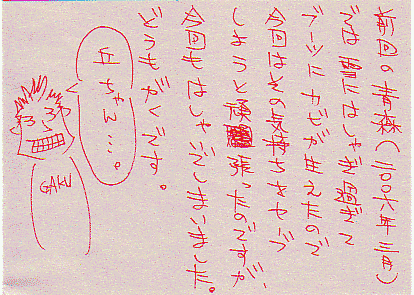 前回の青森(二〇〇六年三月)
では雪にはしゃぎ過ぎて
ブーツにカビが生えたので
今回はその気持ちをセーブ
しようと頑張ったのですが、
今回もはしゃいでしまいました。
どうもがくです。
ちゃん…。
GAKU